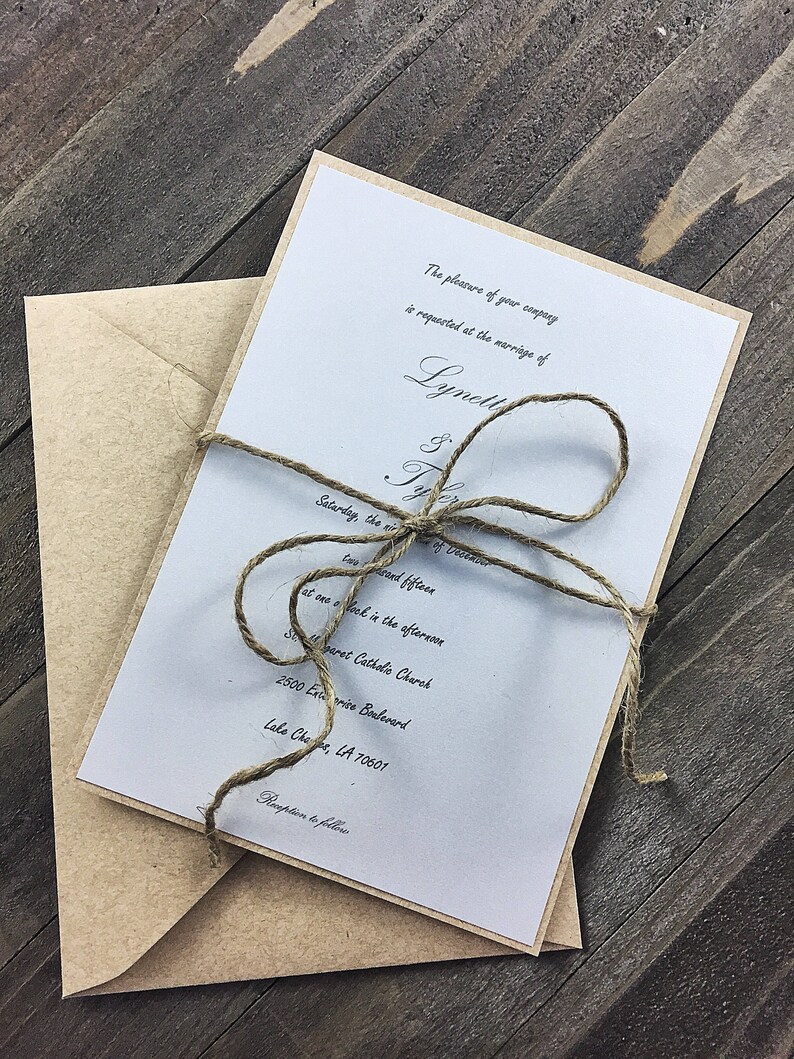 The pleasure of your company
is requested at the marriage of
&
Tyler
Saturday, the of December
two thousand fifteen
at one o'clock in the afternoon
St. Margaret Catholic Church
2500 Enterprise Boulevard
Lake Charles, LA 70601
Reception to follow